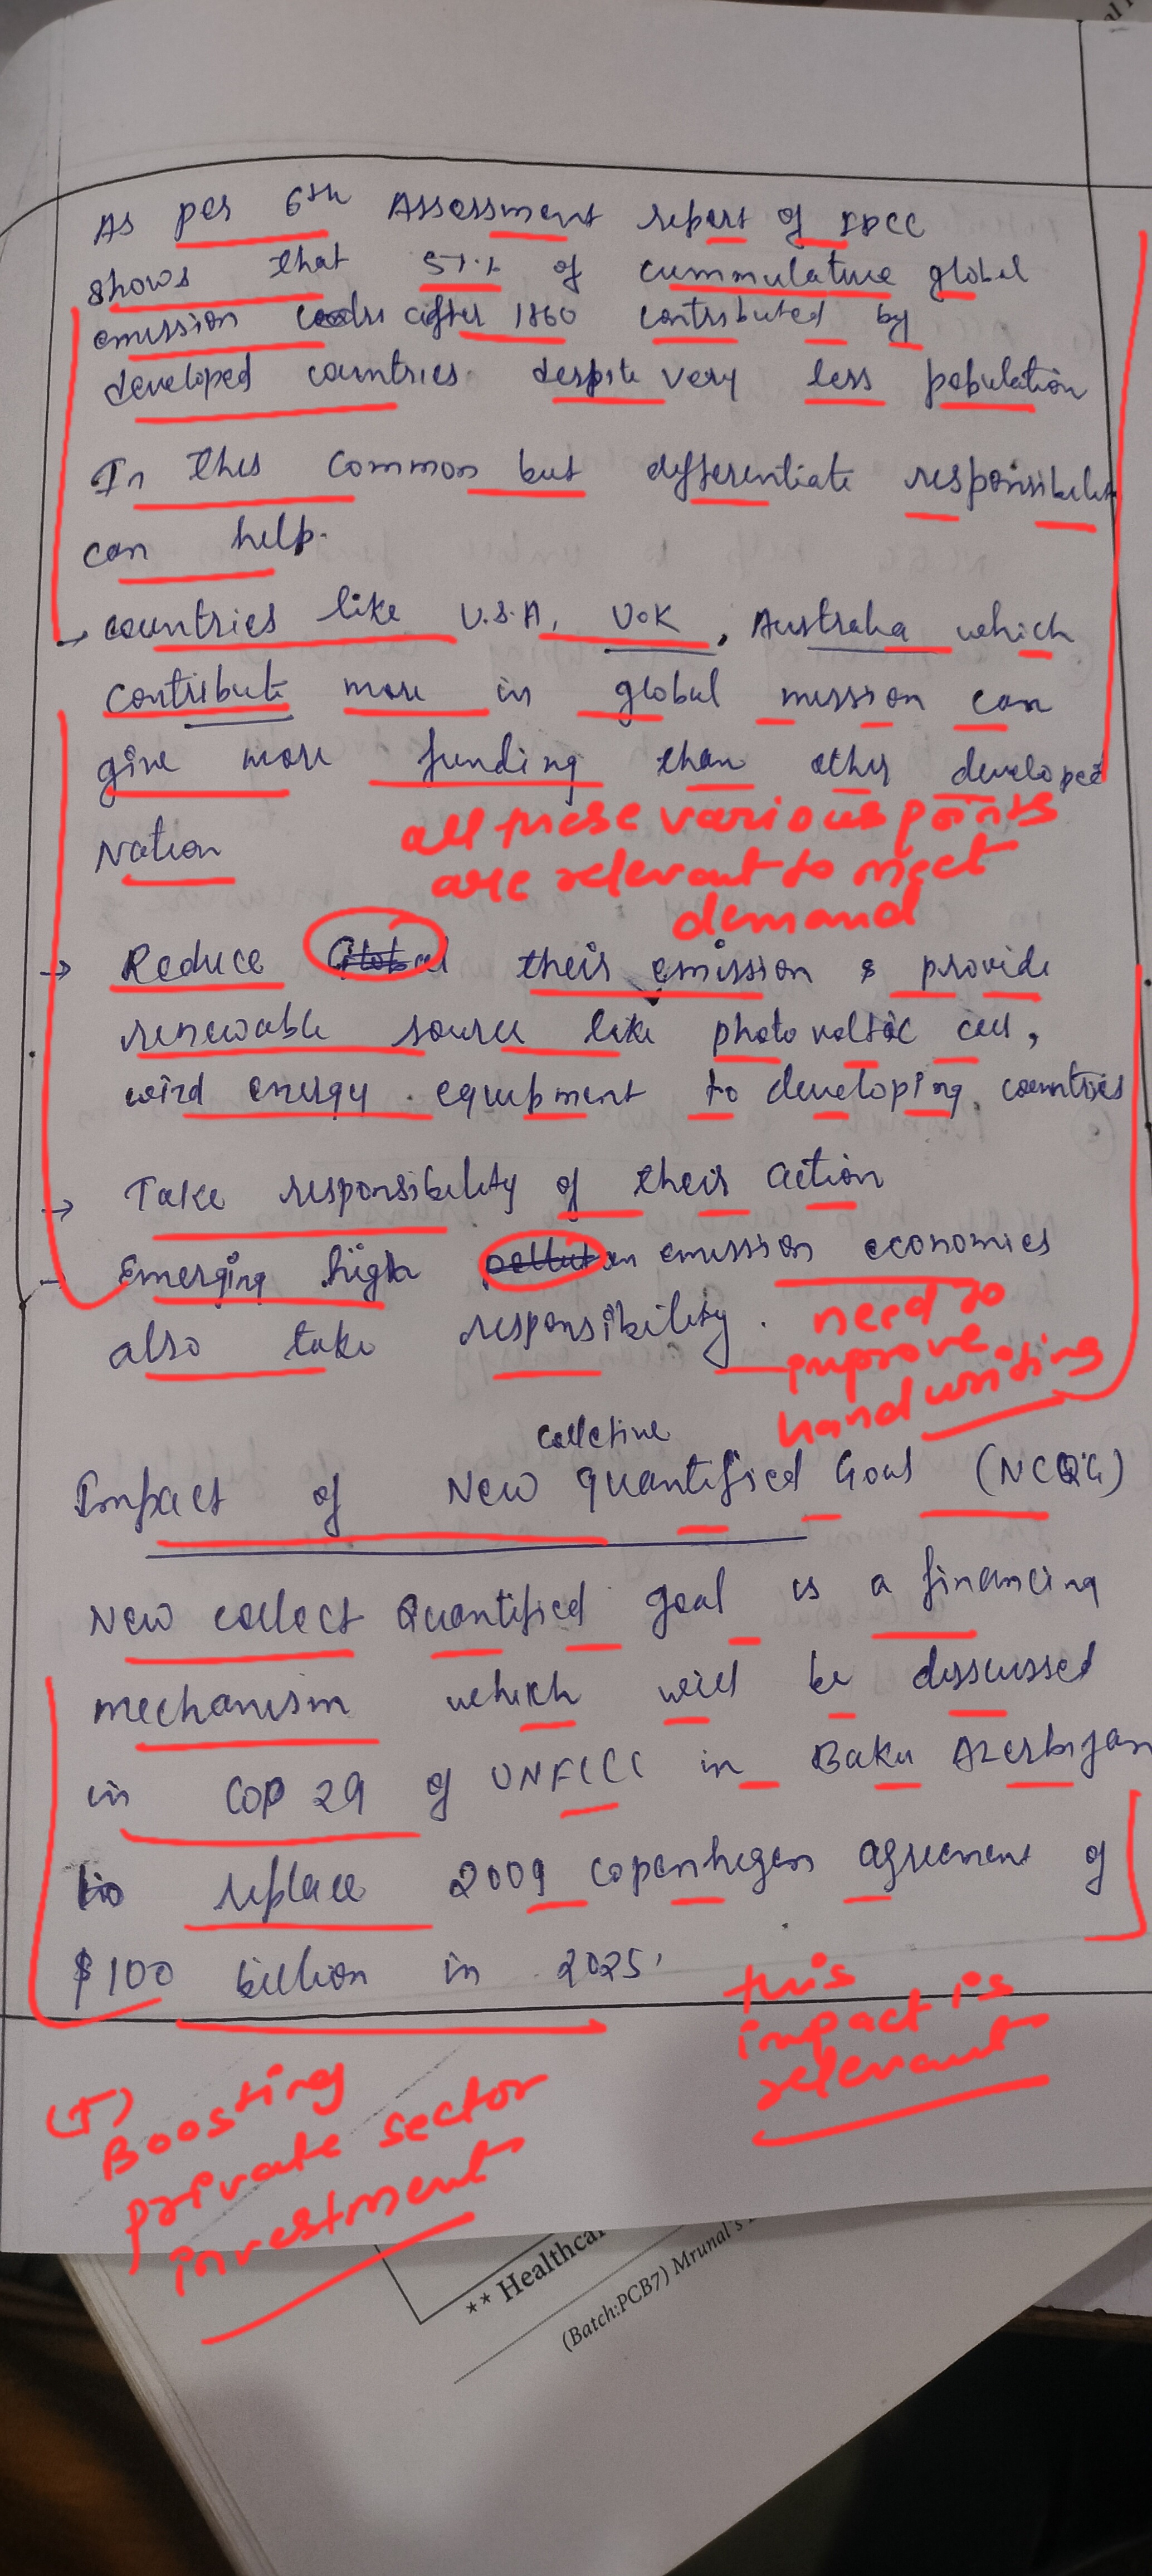 As per 6th Assessment report of IPCC
shows that 57.% of cummulative global
emission after 1860 contributed by
developed countries despite very less population
In this common but differentiate responsibility
can help.
→ countries like U.S.A, U.K, Australia which
contribute more in global mission can
give more funding than other developed
Nation
all these various points
are relevant to meet
demand
→ Reduce their emission & provide
renewable source like photo voltaic cell,
wind energy equipment to developing countries
→ Take responsibility of their action
→ Emerging high emission economies
also take responsibility.
need to
improve
hand writing
collective
Impact of New quantified Goal (NCQG)
New collect Quantified goal is a financing
mechanism which will be disscussed
in COP 29 of UNFCCC in Baku Azerbijan
to replace 2009 copenhegen agreement of
$100 billion in 2025.
this
impact is
relevant
(I)
Boosting
private sector
investment
** Healthca
(Batch:PCB7) Mrunal's